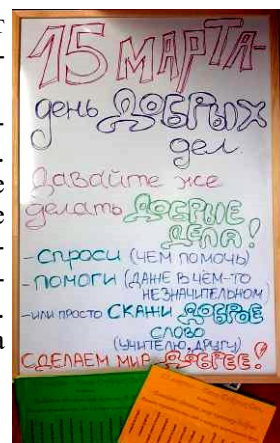 15 МАРТА-
день ДОБРЫХ
дел.
Давайте же
делать ДОБРЫЕ
ДЕЛА!
-СПРОСИ (ЧЕМ ПОМОЧЬ)
-ПОМОГИ (ДАЖЕ В ЧЁМ-ТО
НЕЗНАЧИТЕЛЬНОМ)
-ИЛИ ПРОСТО СКАЖИ ДОБРОЕ
СЛОВО
(УЧИТЕЛЮ, ДРУГУ)
СДЕЛАЕМ МИР ДОБРЕЕ!